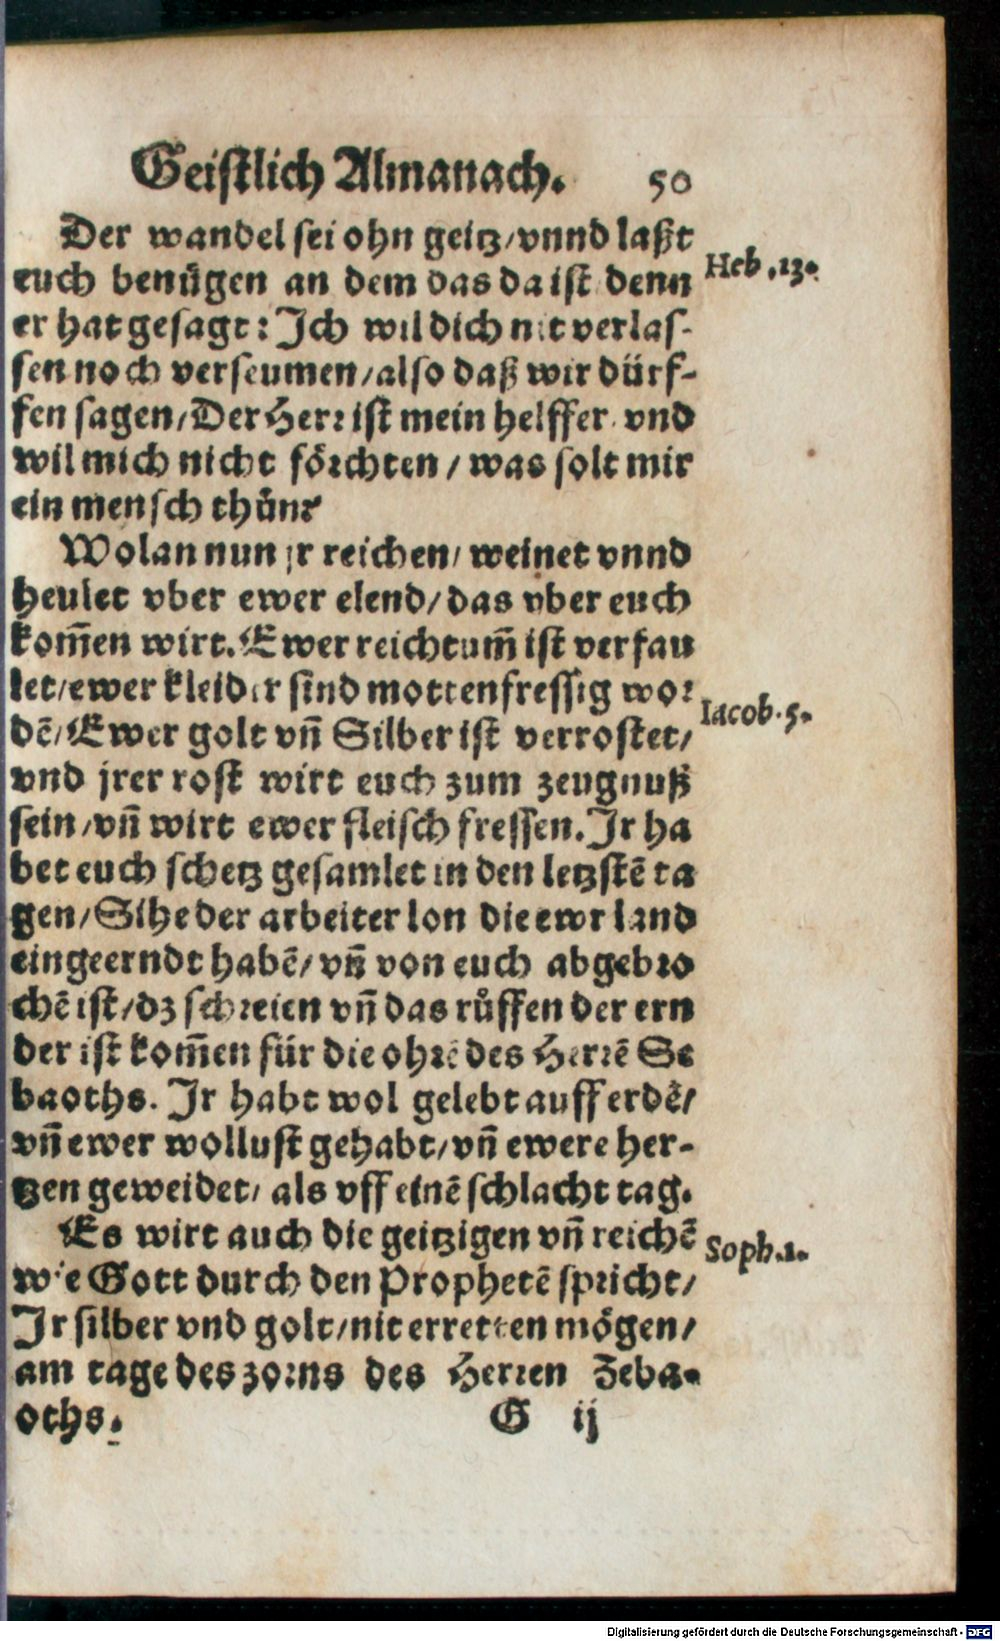 Geistlich Almanach. 50
Der wandel sei ohn geitz/vnnd laßt
euch benügen an dem das da ist denn
er hat gesagt: Ich wil dich nit verlas-
sen noch verseumen/also daß wir dürf-
fen sagen/Der Herr ist mein helffer vnd
wil mich nicht förchten/was solt mir
ein mensch thůn?
Wolan nun jr reichen/weinet vnnd
heulet vber ewer elend/das vber euch
kom̄en wirt. Ewer reichtum̄ ist verfau
let/ewer kleider sind mottenfressig wor
dē/Ewer golt vn̄ Silber ist verrostet/
vnd jrer rost wirt euch zum zeugnuß
sein/vn̄ wirt ewer fleisch fressen. Ir ha
bet euch schetz gesamlet in den letzstē ta
gen/Sihe der arbeiter lon die ewr land
eingeerndt habē/vn̄ von euch abgebro
chē ist/dz schreien vn̄ das růffen der ern
der ist kom̄en für die ohrē des Herrē Se
baoths. Ir habt wol gelebt auff erdē/
vn̄ ewer wollust gehabt/vn̄ ewere her-
tzen geweidet/als vff einē schlacht tag.
Es wirt auch die geitzigen vn̄ reichē
wie Gott durch den Prophetē spricht/
Ir silber vnd golt/nit erretten mögen/
am tage des zorns des Herren Zeba-
oths. G ij
Heb. 13.
Iacob. 5.
Soph. 1.
Digitalisierung gefördert durch die Deutsche Forschungsgemeinschaft - DFG